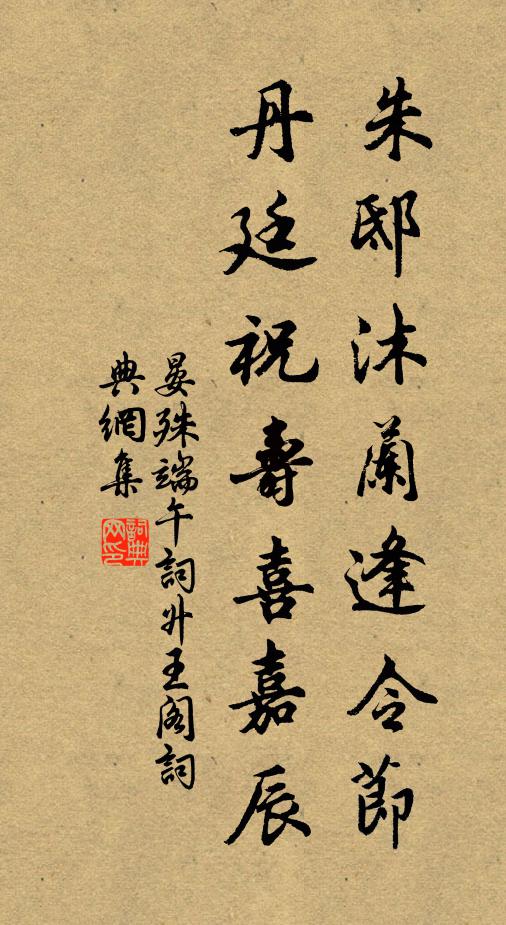 朱邸沐蘭逢令節
丹廷祝壽喜嘉辰
晏殊端午詞升王閣詞
典網集
詞典网印